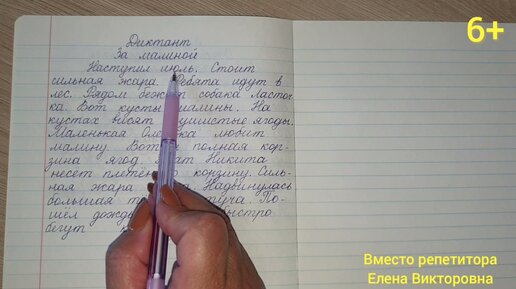 6+
Диктант
За малиной
Наступил июль. Стоит
сильная жара. Ребята идут в
лес. Рядом бежит собака Ласточ-
ка. Вот кусты малины. На
кустах висят душистые ягоды.
Маленькая любит
малину. Вот полная кор-
зина ягод. Брат Никита
несёт корзину. Силь-
ная жара Надвинулась
большая туча. По-
шёл дождь. быстро
бегут
Вместо репетитора
Елена Викторовна